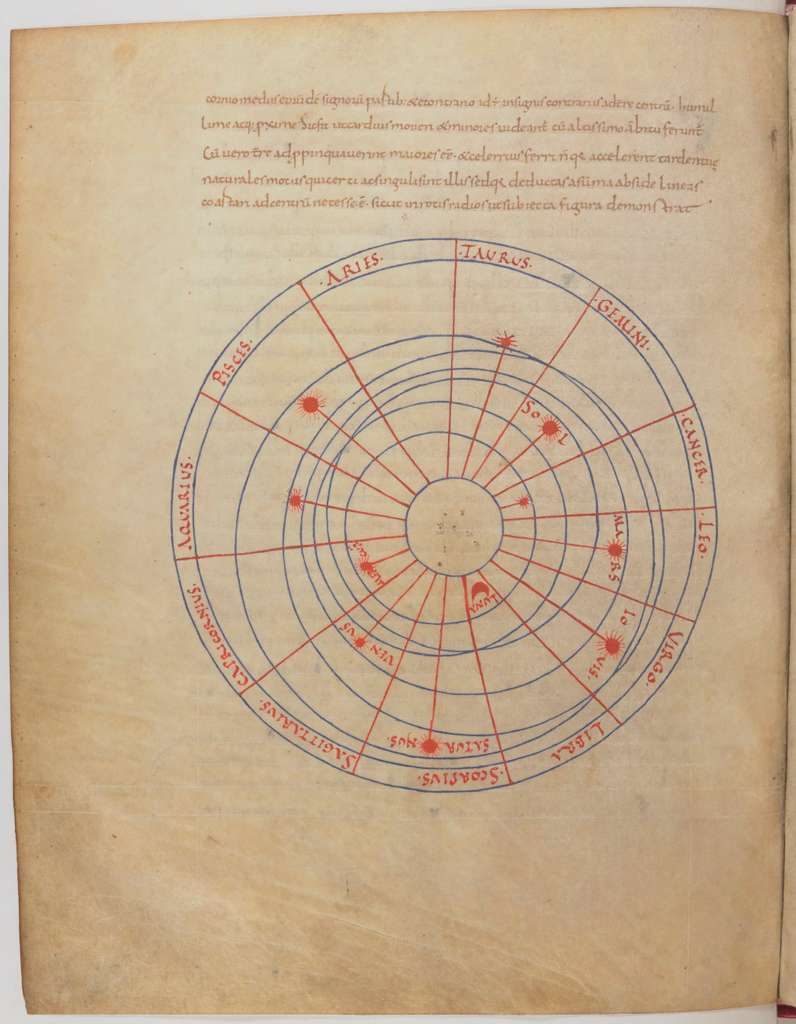 signorū partib; & econtrario id ÷ insignis contrariis adere centrū. humil
lime atq; pxime Sic fit ut tardius moveri & minores videant̄ cū altissimo ābitu ferunt̄
Cū vero tr̄e adppinquaverint maiores eē. & celerius ferri n̄ qđ accelerent tardentue
naturales motus qui certi ac singuli sint illis sed qđ deductas a sūma abside lineas
coartari ad centrū necesse ē. sicut in rotis radios ut subiecta figura demonstrat
·ARIES·
·TAURUS·
·GEMINI·
·CANCER·
·LEO·
VIRGO·
LIBRA
·SCORPIUS·
SAGITTARIUS·
CAPRICORNIUS·
AQUARIUS·
PISCES·
SOL
MARS
IOVIS·
LUNA
SATURNUS·
VENUS
MERCUR